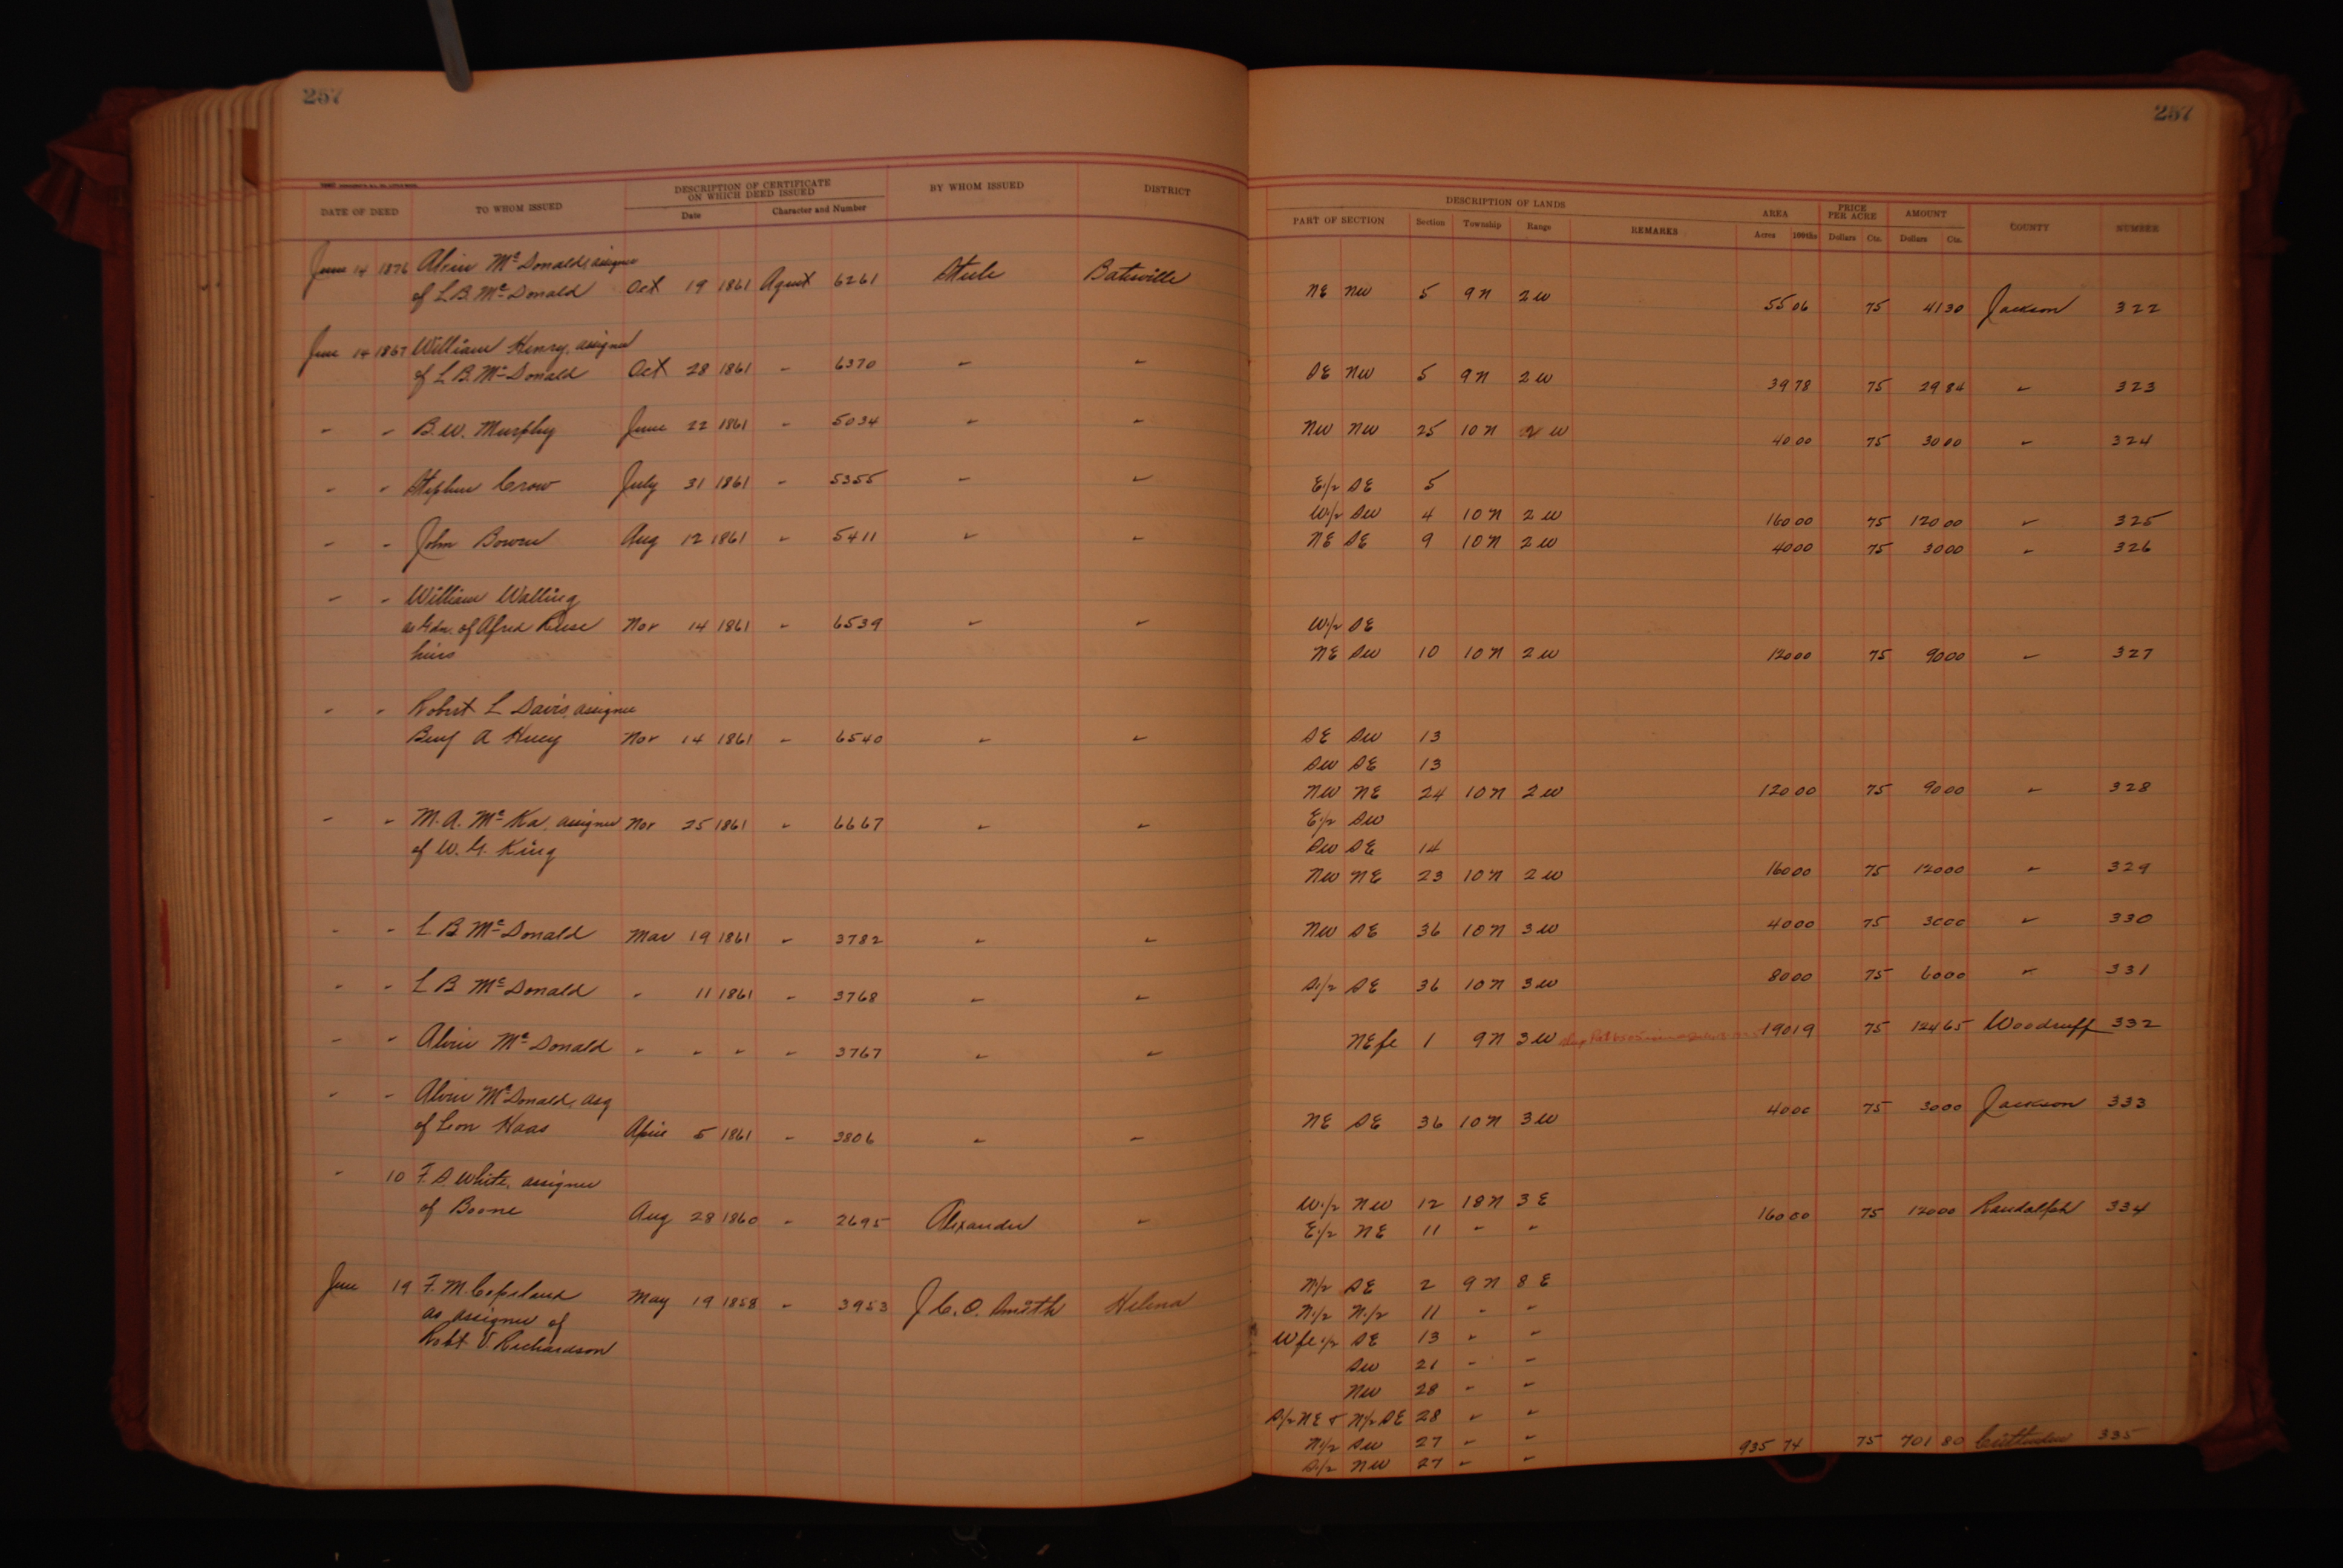 257 257
DATE OF DEED TO WHOM ISSUED DESCRIPTION OF CERTIFICATE ON WHICH DEED ISSUED Date Character and Number BY WHOM ISSUED DISTRICT
DESCRIPTION OF LANDS PART OF SECTION Section Township Range REMARKS AREA Acres 100ths PRICE PER ACRE Dollars Cts. AMOUNT Dollars Cts. COUNTY NUMBER
June 14 1876 Alvin McDonald, assignee
of L.B. McDonald Oct 19 1861 6261 Steele Batesville NE NW 5 9N 2W 55 06 75 41 30 Jackson 322
June 14 1867 William Henry, assignee
of L.B. McDonald Oct 28 1861 " 6370 " " SE NW 5 9N 2W 39 78 75 29 84 " 323
" " B.W. Murphy June 22 1861 " 5034 " " NW NW 25 10N 2W 40 00 75 30 00 " 324
" " Stephen Crow July 31 1861 " 5355 " " E1/2 SE 5
W1/2 SW 4 10N 2W 160 00 75 120 00 " 325
" " John Bowen Aug 12 1861 " 5411 " " NE SE 9 10N 2W 40 00 75 30 00 " 326
" " William Walling
as Gdn. of Afred Ruse Nov 14 1861 " 6539 " " W1/2 SE
heirs NE SW 10 10N 2W 120 00 75 90 00 " 327
" " Robert L Davis, assignee
Benj A Huey Nov 14 1861 " 6540 " " SE SW 13
SW SE 13
NW NE 24 10N 2W 120 00 75 90 00 " 328
" " M.A. McKa, assignee Nov 25 1861 " 6667 " " E1/2 SW
of W.G. King SW SE 14
NW NE 23 10N 2W 160 00 75 120 00 " 329
" " L.B. McDonald Mar 19 1861 " 3782 " " NW SE 36 10N 3W 40 00 75 30 00 " 330
" " L B McDonald " 11 1861 " 3768 " " S1/2 SE 36 10N 3W 80 00 75 60 00 " 331
" " Alvin McDonald " " " " 3767 " " NE fr 1 9N 3W 190 19 75 124 65 Woodruff 332
" " Alvin McDonald, asg
of Leon Haas April 5 1861 " 3806 " " NE SE 36 10N 3W 40 00 75 30 00 Jackson 333
" 10 F.S. White, assignee
of Boone Aug 28 1860 " 2695 Alexander " W1/2 NW 12 18N 3E 160 00 75 120 00 Randolph 334
E1/2 NE 11 " "
June 19 F.M. Copeland May 19 1858 " 3953 J.C.O. Smith Helena N1/2 SE 2 9N 8E
as assignee of N1/2 N1/2 11 " "
Robt V. Richardson W fr 1/2 SE 13 " "
SW 21 " "
NW 28 " "
S1/2 NE & N1/2 SE 28 " "
N1/2 SW 27 " " 935 74 75 701 80 Crittenden 335
S1/2 NW 27 " "